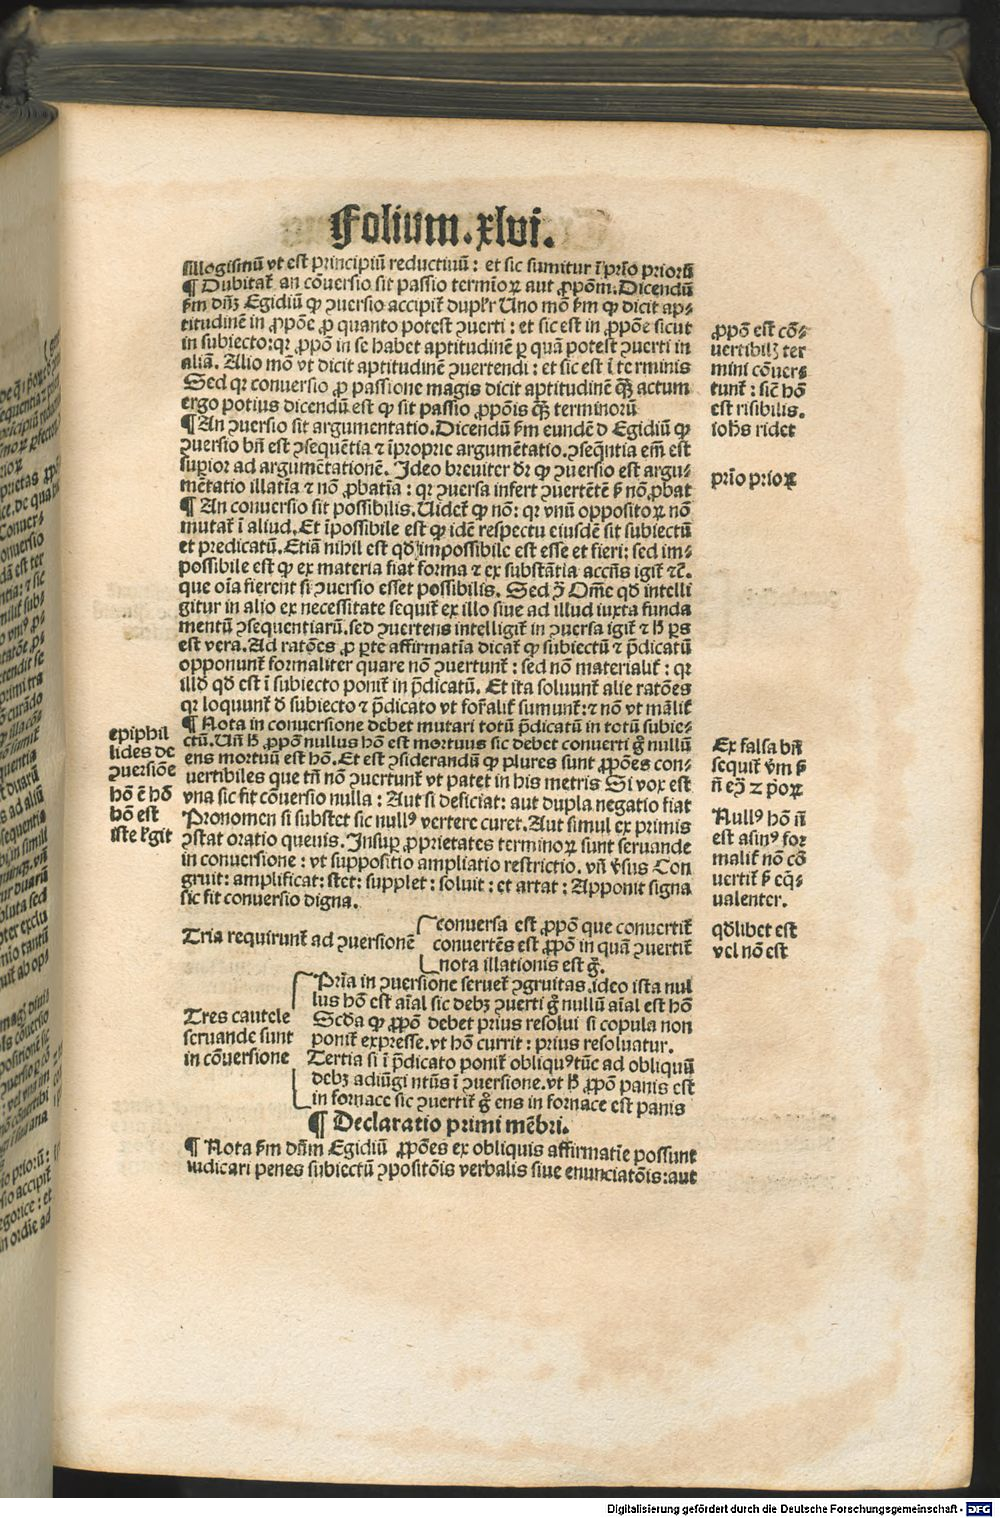 Folium. xlvi.
sillogismū vt est principiū reductiuū: et sic sumitur ī prīo priorū
¶ Dubitat᷑ an cōversio sit passio termīoꝝ aut ꝓpōm. Dicendū
ẜm dn̄ꝫ Egidiū ꝙ ꝯuersio accipit᷑ duplr̄ Uno mō ẜm ꝙ dicit ap-
titudinē in ꝓpōe ꝓ quanto potest ꝯuerti: et sic est in ꝓpōne sicut
in subiecto: qꝛ ꝓpō in se habet aptitudinē ꝑ quā potest ꝯuerti in
aliā. Alio mō vt dicit aptitudinē ꝯuertendi: et sic est ī terminis
Sed qꝛ conuersio ꝓ passione magis dicit aptitudinē q̄ꝫ actum
ergo potius dicendū est ꝙ sit passio ꝓpōis q̄ꝫ terminorū
¶ An ꝯuersio sit argumentatio. Dicendū ẜm eundē d Egidiū ꝙ
ꝯuersio bn̄ est ꝯsequētia ⁊ īproprie argumētatio. ꝯseq̄ntia em̄ est
superior ad argumētationē. Ideo breuiter dr̄ ꝙ ꝯuersio est argu-
mētatio illatīa ⁊ nō ꝓbatīa: qꝛ ꝯuersa infert ꝯuertētē ẜ nō ꝓbat
¶ An conuersio sit possibilis. Uidet᷑ ꝙ nō: qꝛ vnū oppositoꝝ nō
mutat᷑ ī aliud. Et īpossibile est ꝙ idē respectu eiusdē sit subiectū
et predicatū. Etiā nihil est qd̄ impossibile est esse et fieri: sed im-
possibile est ꝙ ex materia fiat forma ⁊ ex substātia accn̄s igit᷑ ⁊c̄.
que oīa fierent si ꝯuersio esset possibilis. Sed ꝯ̄ Om̄e qd̄ intelli
gitur in alio ex necessitate sequit᷑ ex illo siue ad illud iuxta funda
mentū ꝯsequentiarū. sed ꝯuertens intelligit᷑ in ꝯuersa igit᷑ ⁊ h̄ ꝑs
est vera. Ad ratōes ꝓ ꝑte affirmatīa dicat᷑ ꝙ subiectū ⁊ p̄dicatū
opponunt᷑ formaliter quare nō ꝯuertunt᷑: sed nō materialit᷑: qꝛ
illd̄ qd̄ est ī subiecto ponit᷑ in p̄dicatū. Et ita soluunt᷑ alie ratōes
qꝛ loquunt᷑ d̄ subiecto ⁊ p̄dicato vt for̄alit᷑ sumunt᷑: ⁊ nō vt māliť
¶ Nota in conuersione debet mutari totū p̄dicatū in totū subie-
ctū. Un̄ h̄ ꝓpō nullus hō est mortuus sic debet conuerti g̊ nullū
ens mortuū est hō. Et est ꝯsiderandū ꝙ plures sunt ꝓpōes con-
uertibiles que tn̄ nō ꝯuertunt᷑ vt patet in his metris Si vox est
vna sic fit cōuersio nulla: Aut si deficiat: aut dupla negatio fiat
Pronomen si substet sic null⁹ vertere curet. Aut simul ex primis
ꝯstat oratio queuis. Insuꝑ ꝓprietates terminoꝝ sunt seruande
in conuersione: vt suppositio ampliatio restrictio. vn̄ v̄sus Con
gruit: amplificat: stet: supplet: soluit: et artat: Apponit signa
sic fit conuersio digna.
Tria requirunt᷑ ad ꝯuersionē
conuersa est ꝓpō que conuertit᷑
conuertēs est ꝓpō in quā ꝯuertit᷑
nota illationis est g̊.
Tres cautele
seruande sunt
in cōuersione
Prīa in ꝯuersione seruet᷑ ꝯgruitas. ideo ista nul
lus hō est aīal sic debꝫ ꝯuerti g̊ nullū aīal est hō
Scd̄a ꝙ ꝓpō debet prius resolui si copula non
ponit᷑ expresse. vt hō currit: prius resoluatur.
Tertia si ī p̄dicato ponit᷑ obliqu⁹ tūc ad obliquū
debꝫ adiūgi ntūs ī ꝯuersione. vt h̄ ꝓpō panis est
in fornace sic ꝯuertit᷑ g̊ ens in fornace est panis
¶ Declaratio primi mēbri.
¶ Nota ẜm dn̄m Egidiū ꝓpōes ex obliquis affirmatīe possunt
iudicari penes subiectū ꝯpositōis verbalis siue enunciatōis: aut
ꝓpō est cō-
uertibilꝫ ter
mini cōuer-
tunt᷑: sic̄ hō
est risibilis.
ioh̄s ridet
prīo prioꝝ
epiphil
lides de
ꝯuersiōe
hō ē hō
hō est
iste l᷑git
Ex falsa bn̄
sequit᷑ v̄m ẜ
n̄ eꝯ̄ ⁊ p̊oꝝ
Null⁹ hō n̄
est asin⁹ for
malit᷑ nō cō
vertit᷑ ẜ eq̄-
ualenter.
qd̄libet est
vel nō est
Digitalisierung gefördert durch die Deutsche Forschungsgemeinschaft - DFG